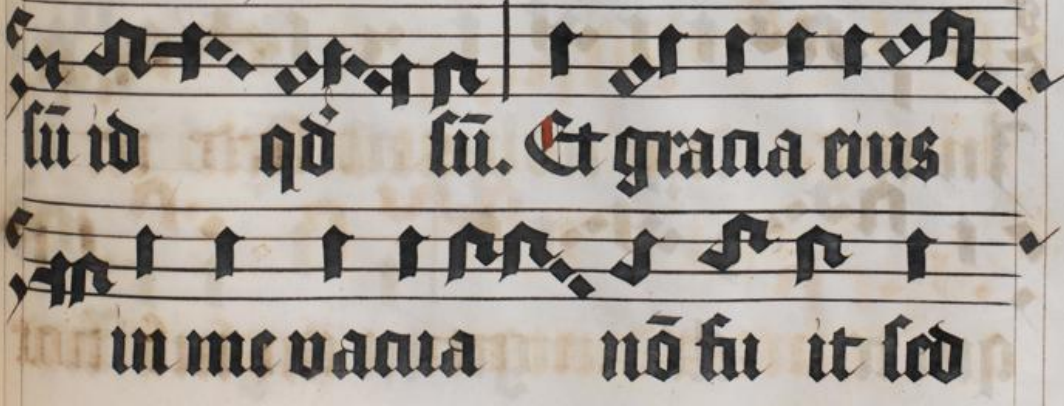 sū id qd̕ sū. Et gracia eius
in me vacua nō fu it sed